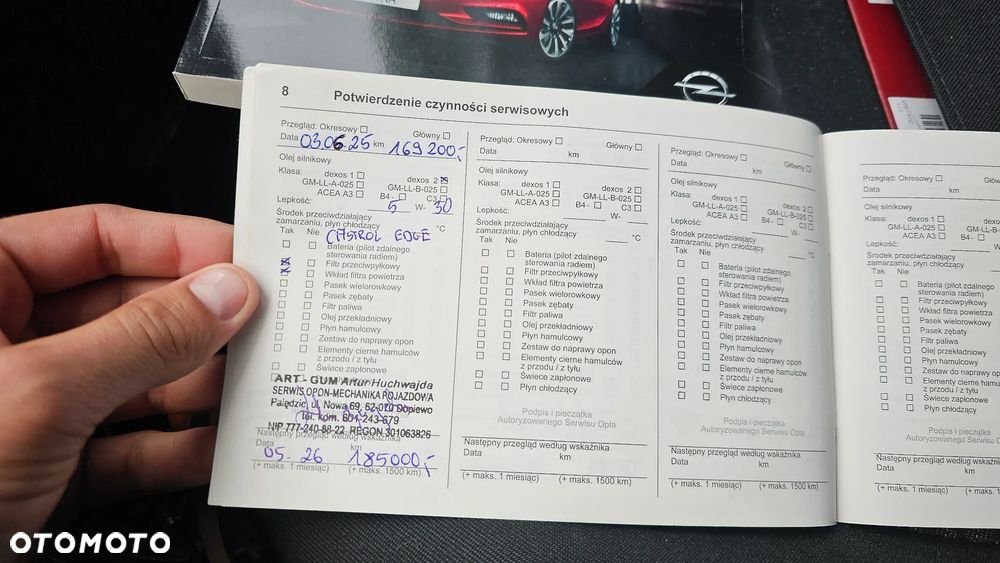 8 Potwierdzenie czynności serwisowych
Przegląd: Okresowy ☐ Główny ☐
Data 03.06.25 km 169 200,-
Olej silnikowy
Klasa: dexos 1 ☐ dexos 2 ☒
GM-LL-A-025 ☐ GM-LL-B-025 ☐
ACEA A3 ☐ B4 - ☐ C3 ☐
Lepkość: 5 W- 30
Środek przeciwdziałający
zamarzaniu, płyn chłodzący °C
Tak Nie CASTROL EDGE
Bateria (pilot zdalnego
sterowania radiem)
Filtr przeciwpyłkowy
Wkład filtra powietrza
Pasek wielorowkowy
Pasek zębaty
Filtr paliwa
Olej przekładniowy
Płyn hamulcowy
Zestaw do naprawy opon
Elementy cierne hamulców
z przodu / z tyłu
Świece zapłonowe
ART - GUM Artur Huchwajda
SERWIS OPON-MECHANIKA POJAZDOWA
Palędzie, ul. Nowa 69, 62-070 Dopiewo
Tel. kom. 601-243-679
NIP 777-240-88-22 REGON 301063826
Następny przegląd według wskaźnika
Data km
05. 26 185000,-
(+ maks. 1 miesiąc) (+ maks. 1500 km)
Przegląd: Okresowy ☐ Główny ☐
Data km
Olej silnikowy
Klasa: dexos 1 ☐ dexos 2 ☐
GM-LL-A-025 ☐ GM-LL-B-025 ☐
ACEA A3 ☐ B4 - ☐ C3 ☐
Lepkość: W-
Środek przeciwdziałający
zamarzaniu, płyn chłodzący °C
Tak Nie
Bateria (pilot zdalnego
sterowania radiem)
Filtr przeciwpyłkowy
Wkład filtra powietrza
Pasek wielorowkowy
Pasek zębaty
Filtr paliwa
Olej przekładniowy
Płyn hamulcowy
Zestaw do naprawy opon
Elementy cierne hamulców
z przodu / z tyłu
Świece zapłonowe
Płyn chłodzący
Podpis i pieczątka
Autoryzowanego Serwisu Opla
Następny przegląd według wskaźnika
Data km
(+ maks. 1 miesiąc) (+ maks. 1500 km)
Przegląd: Okresowy ☐ Główny ☐
Data km
Olej silnikowy
Klasa: dexos 1 ☐ dexos 2 ☐
GM-LL-A-025 ☐ GM-LL-B-025 ☐
ACEA A3 ☐ B4 - ☐ C3 ☐
Lepkość: W-
Środek przeciwdziałający
zamarzaniu, płyn chłodzący °C
Tak Nie
Bateria (pilot zdalnego
sterowania radiem)
Filtr przeciwpyłkowy
Wkład filtra powietrza
Pasek wielorowkowy
Pasek zębaty
Filtr paliwa
Olej przekładniowy
Płyn hamulcowy
Zestaw do naprawy opon
Elementy cierne hamulców
z przodu / z tyłu
Świece zapłonowe
Płyn chłodzący
Podpis i pieczątka
Autoryzowanego Serwisu Opla
Następny przegląd według wskaźnika
Data km
(+ maks. 1 miesiąc) (+ maks. 1500 km)
Przegląd: Okresowy ☐
Data km
Olej silnikowy
Klasa: dexos 1 ☐
GM-LL-A-025 ☐
ACEA A3 ☐ B4 - ☐
Lepkość:
Środek przeciwdziałający
zamarzaniu, płyn chłodzący
Tak Nie
Bateria (pilot zdalnego
sterowania radiem)
Filtr przeciwpyłkowy
Wkład filtra powietrza
Pasek wielorowkowy
Pasek zębaty
Filtr paliwa
Olej przekładniowy
Płyn hamulcowy
Zestaw do naprawy opon
Elementy cierne hamulców
z przodu / z tyłu
Świece zapłonowe
Płyn chłodzący
Podpis i pieczątka
Autoryzowanego Serwisu Opla
Następny przegląd według wskaźnika
Data km
(+ maks. 1 miesiąc) (+ maks. 1500 km)
OTOMOTO